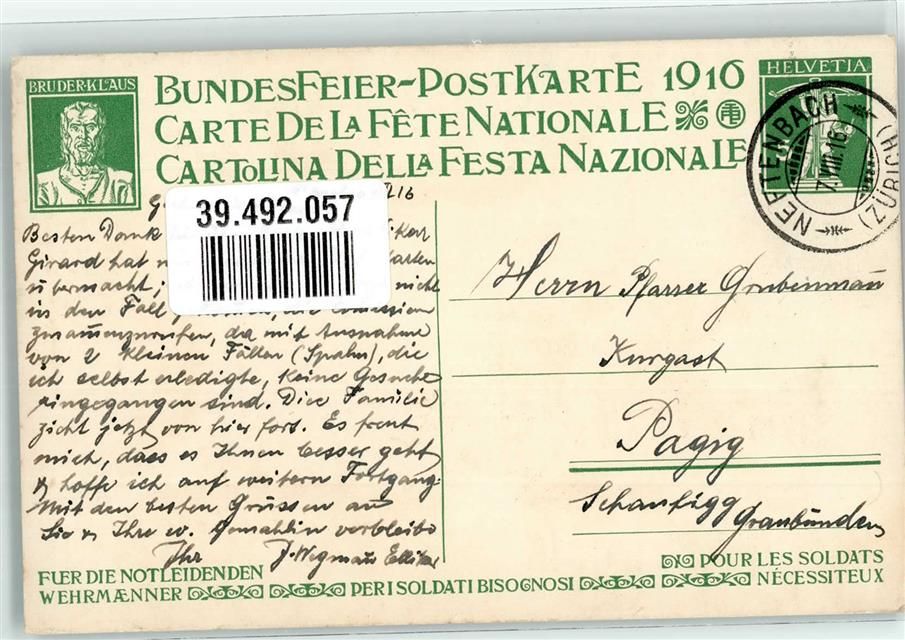 BRUDER·KLAUS
BUNDESFEIER-POSTKARTE 1916
CARTE DE LA FÊTE NATIONALE
CARTOLINA DELLA FESTA NAZIONALE
HELVETIA
NEFTENBACH
(ZÜRICH)
7.VIII.16
39.492.057
16
Besten Dank
Girard hat
übermacht, nicht
in den Fall
zusammenzurufen, da mit Ausnahme
von 2 kleinen Fällen (Spahn), die
ich selbst erledigte, keine Gesuche
eingegangen sind. Die Familie
zieht jetzt von hier fort. Es freut
mich, dass es Ihnen besser geht
& hoffe ich auf weitern Fortgang.
Mit den besten Grüssen an
Sie & Ihre w. Gemahlin verbleibe
Ihr J. Wegmann
Herrn Pfarrer Grubenmann
Kurgast
Pagig
Schanfigg
Graubünden
FUER DIE NOTLEIDENDEN
WEHRMÆNNER
PER I SOLDATI BISOGNOSI
POUR LES SOLDATS
NÉCESSITEUX